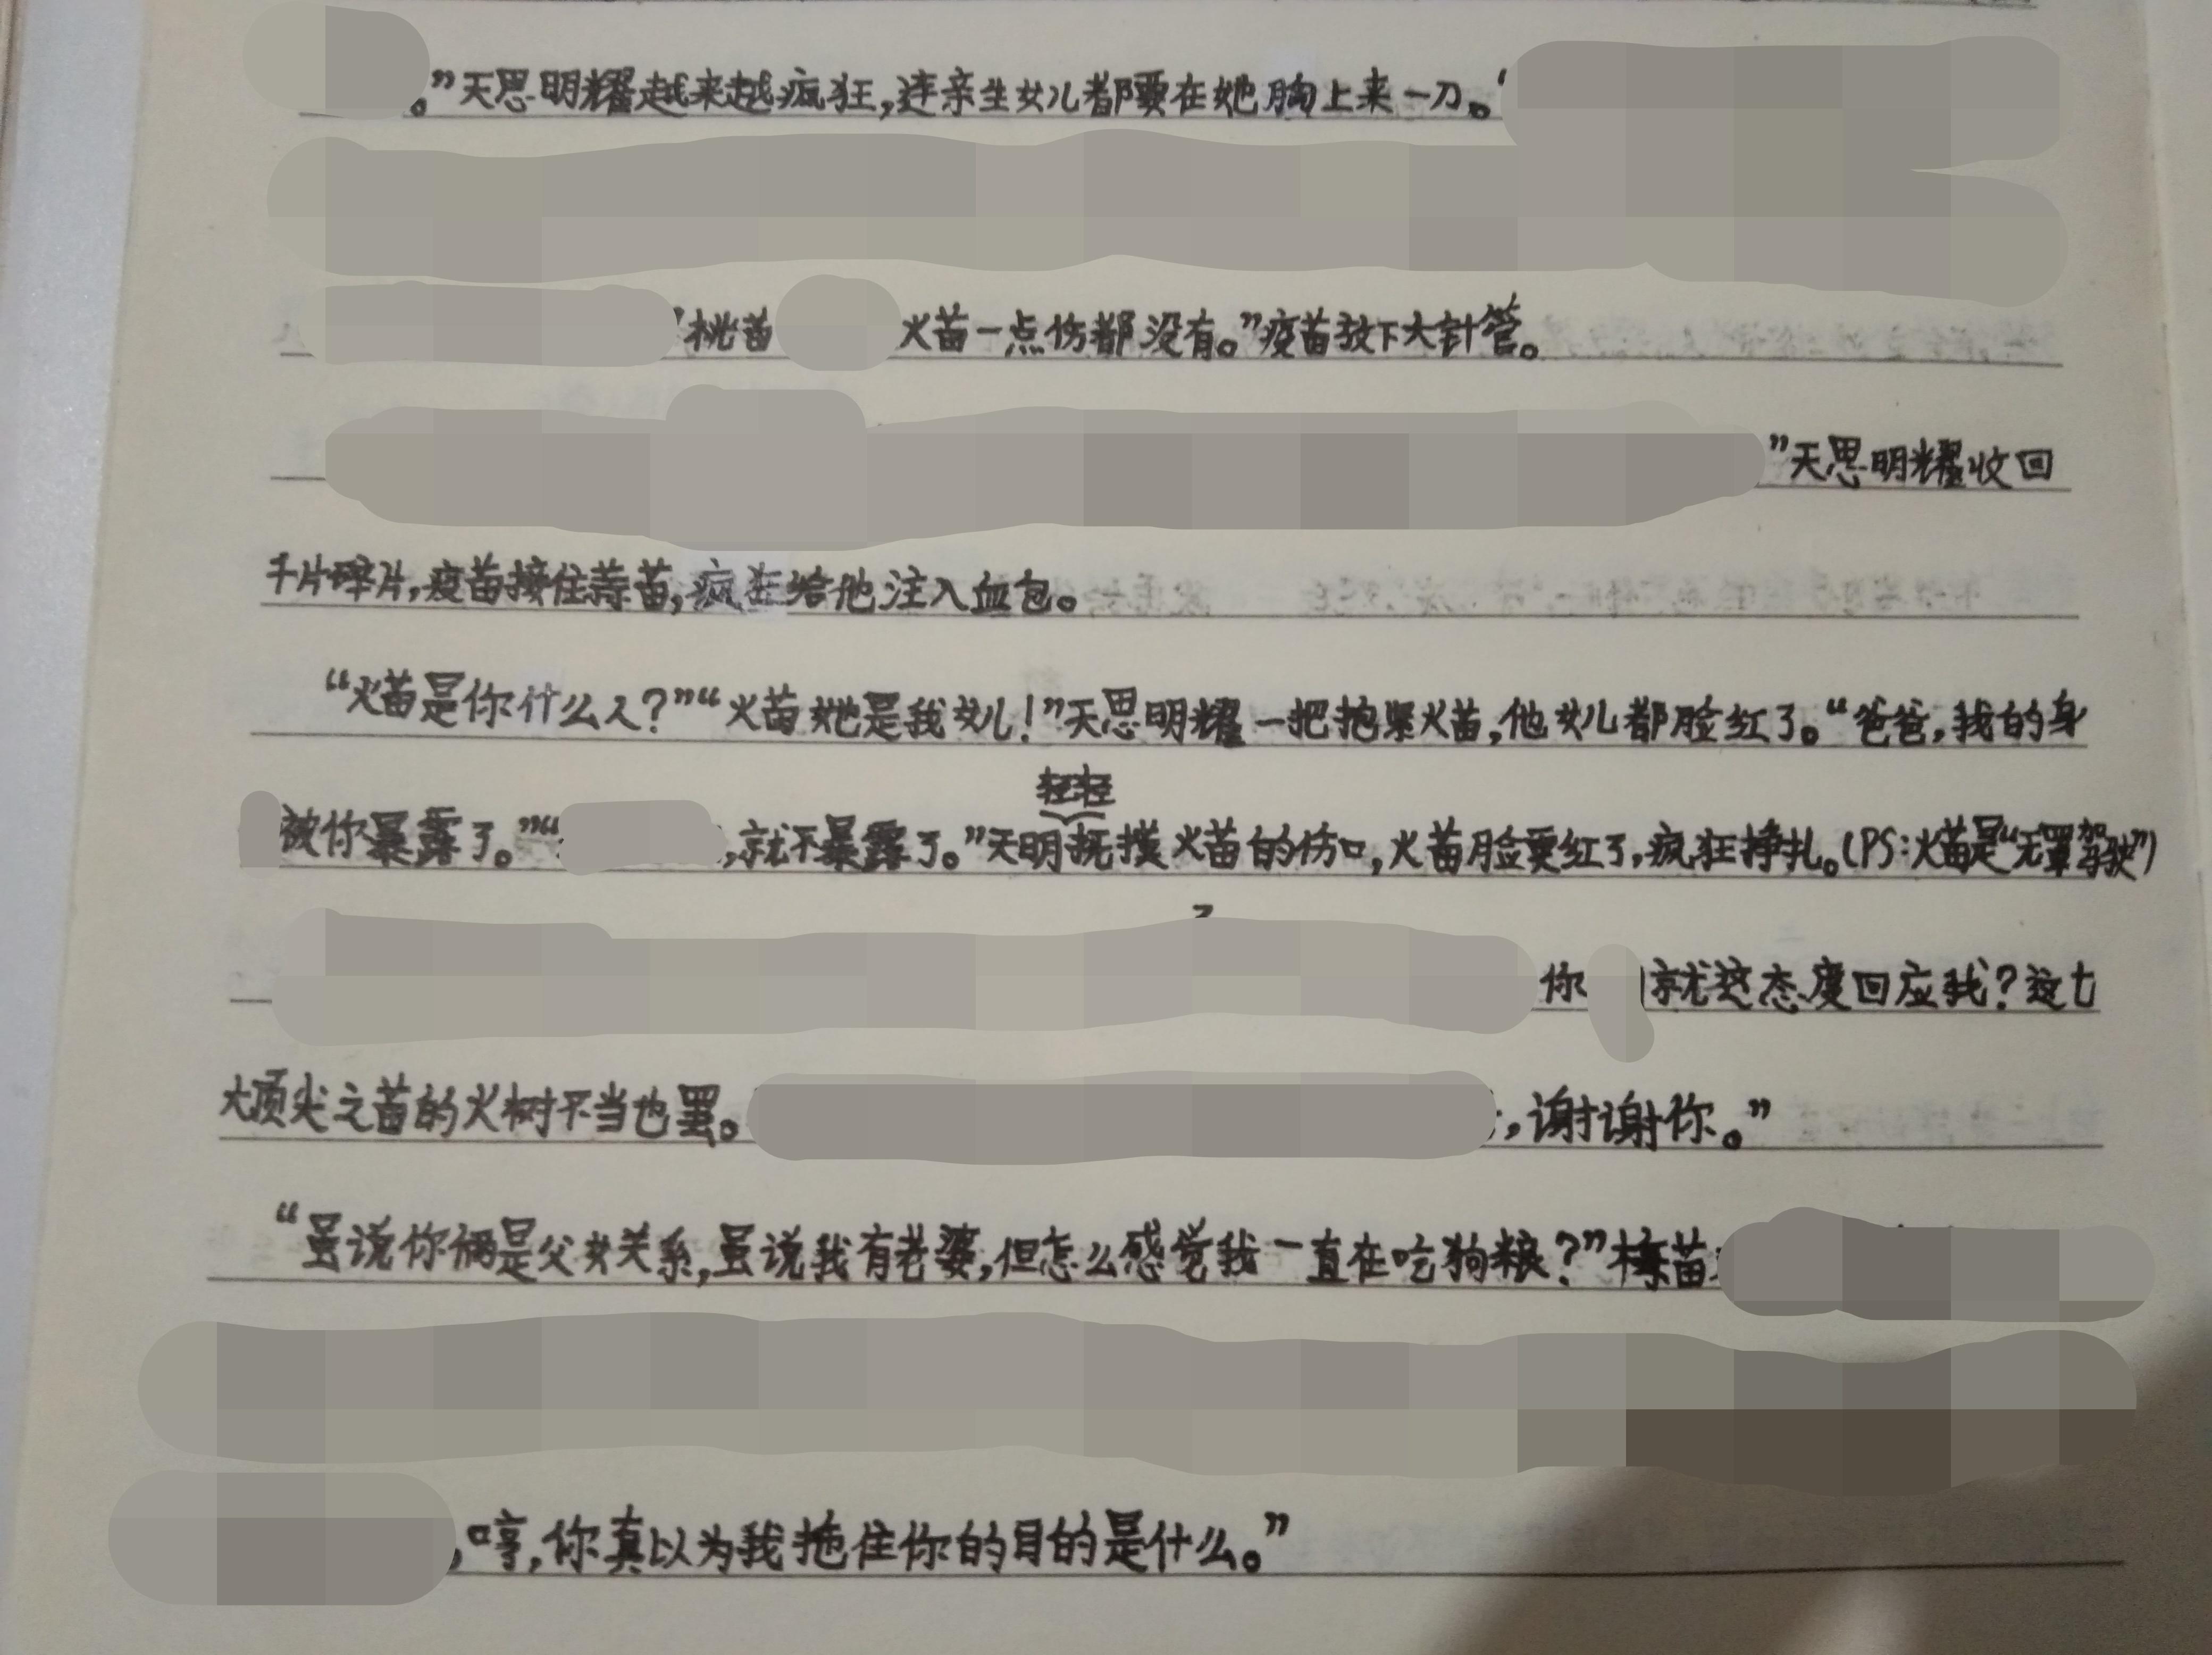 。”天思明耀越来越疯狂,连亲生女儿都要在她胸上来一刀。“
桃苗 火苗一点伤都没有。”疫苗放下大针管。
”天思明耀收回
千片碎片,疫苗接住蒜苗,疯狂给他注入血包。
“火苗是你什么人?”“火苗她是我女儿!”天思明耀一把抱紧火苗,他女儿都脸红了。“爸爸,我的身
轻轻
被你暴露了。”“ ,就不暴露了。”天明抚摸火苗的伤口,火苗脸更红了,疯狂挣扎。(PS:火苗是“无罩驾驶”)
你 就这态度回应我?这七
大顶尖之苗的火树不当也罢。 ,谢谢你。”
“虽说你俩是父女关系,虽说我有老婆,但怎么感觉我一直在吃狗粮?”栋苗
,“哼,你真以为我拖住你的目的是什么。”